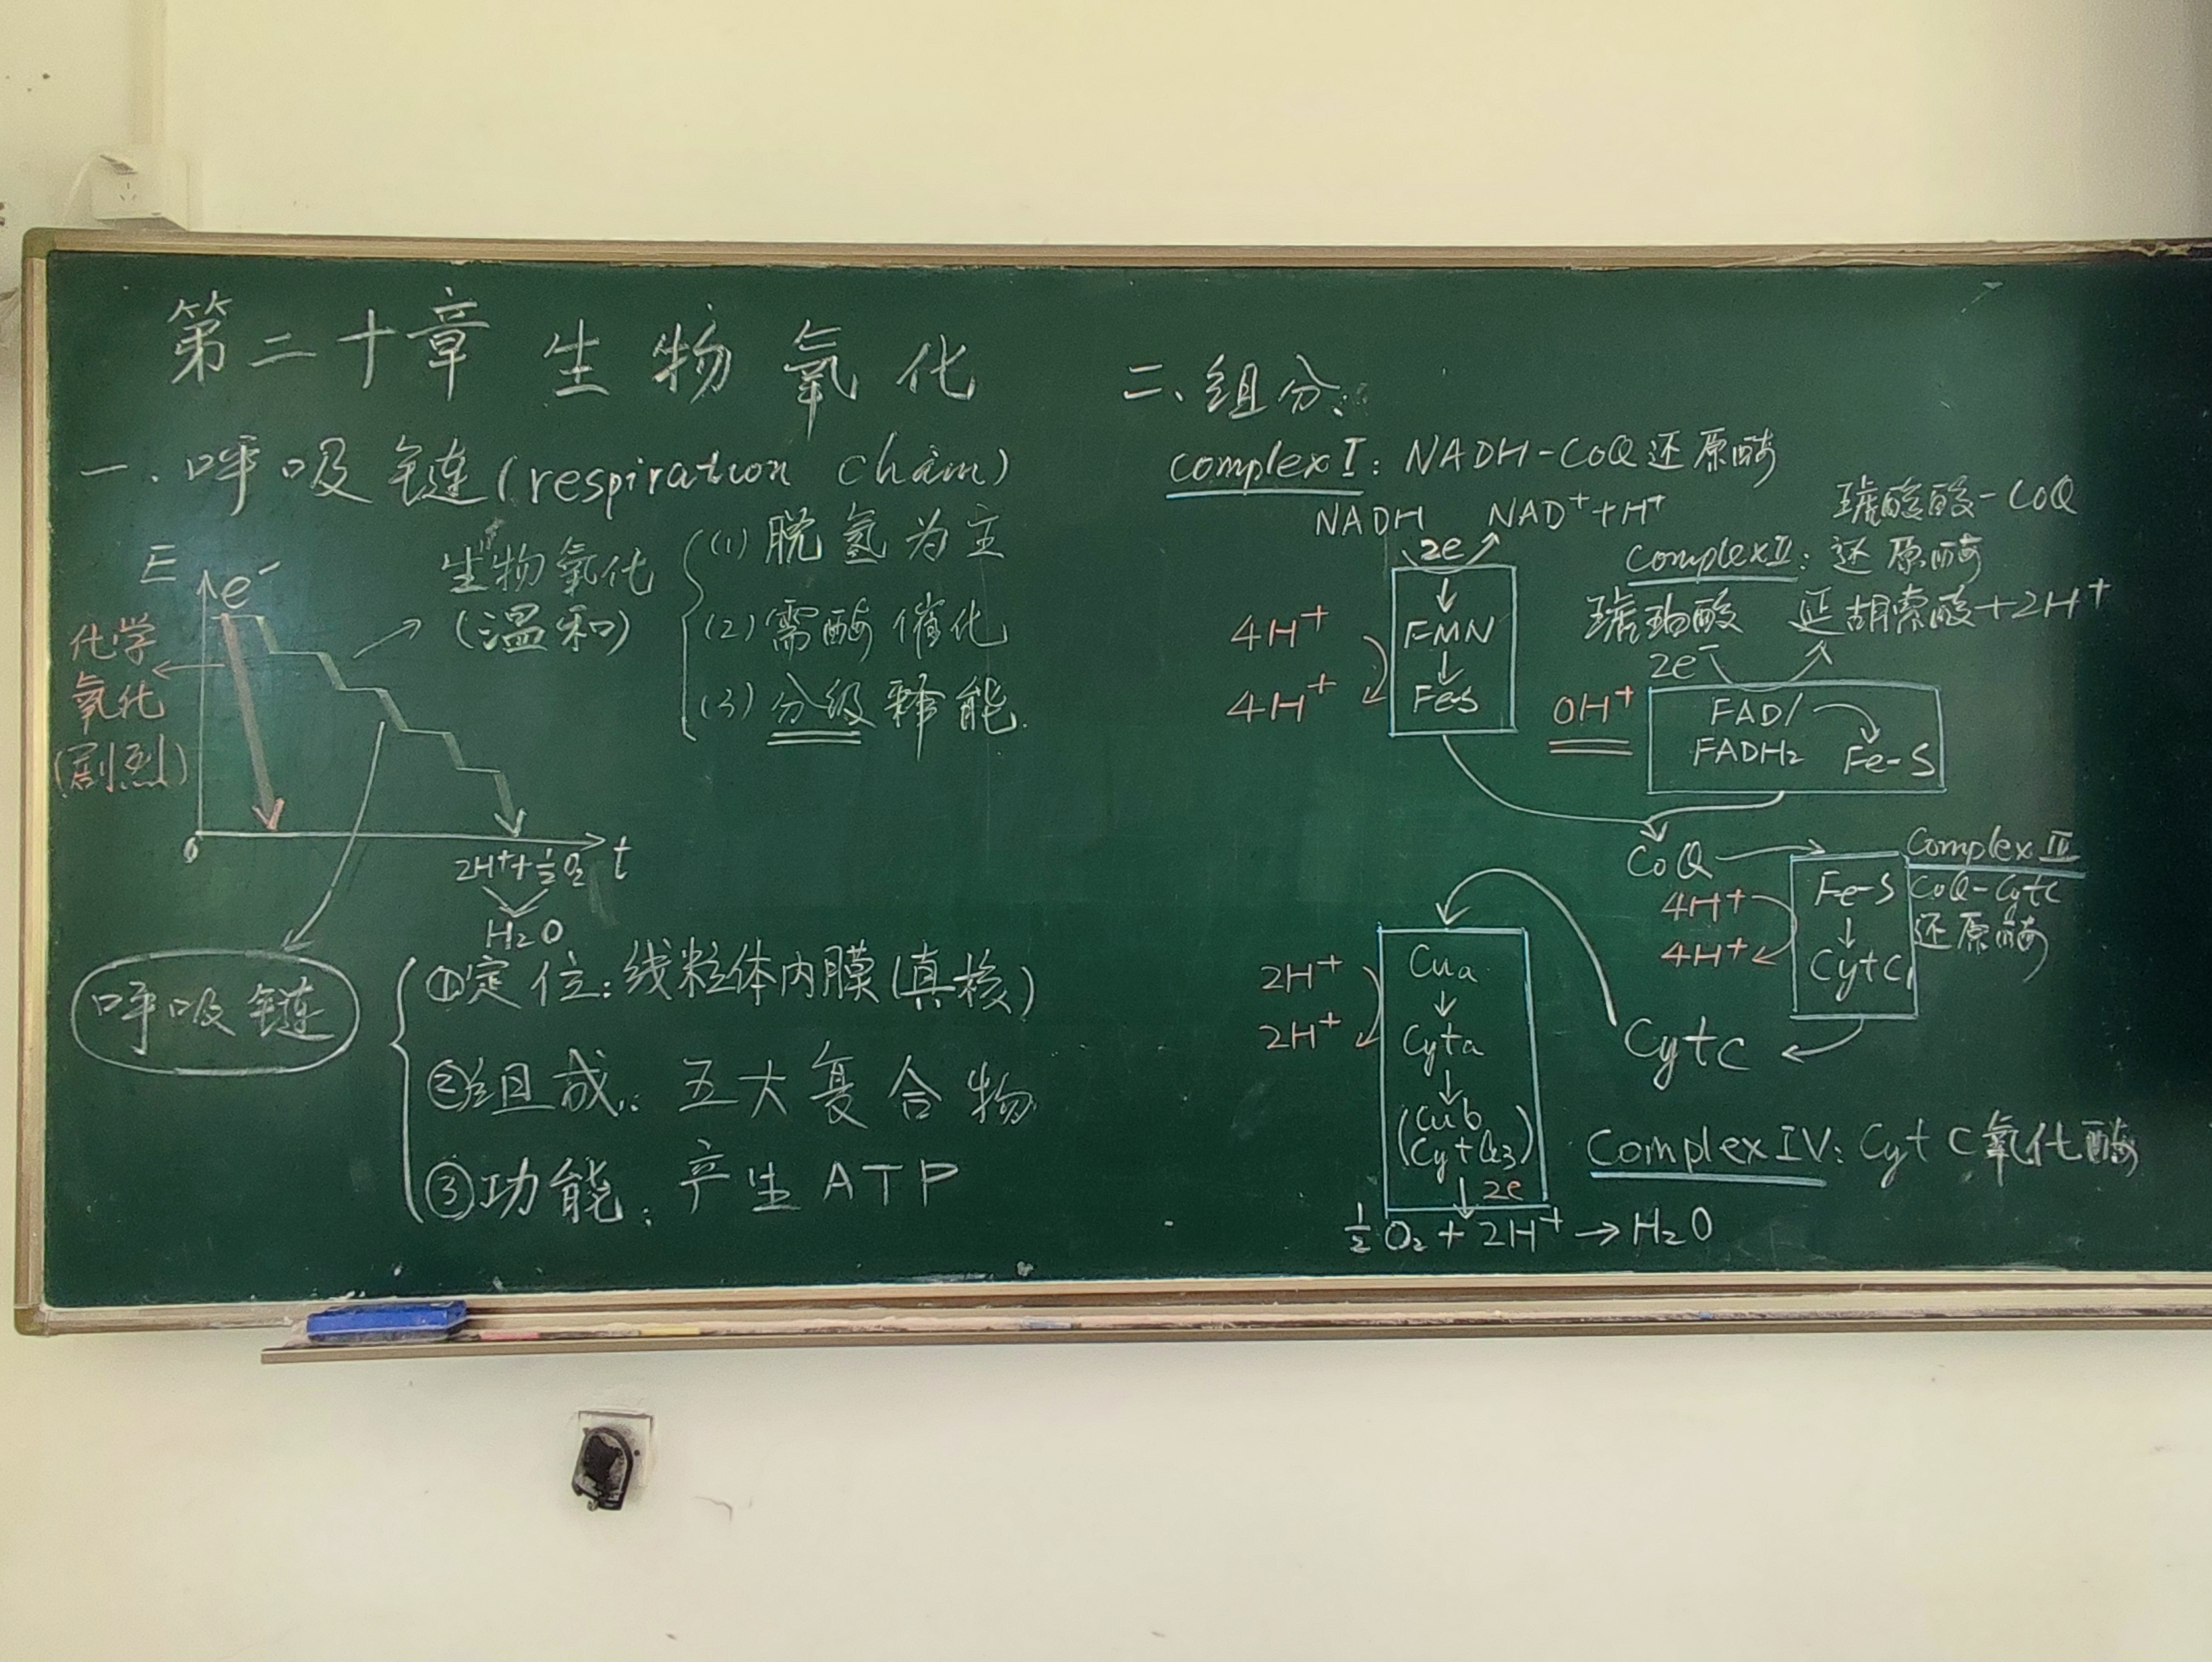 第二十章 生物氧化
一.呼吸链(respiration chain)
E
e⁻
化学
氧化
(剧烈)
生物氧化
(温和)
(1) 脱氢为主
(2) 需酶催化
(3) 分级释能.
0
2H⁺+½O₂
t
H₂O
呼吸链
①定位:线粒体内膜(真核)
②组成:五大复合物
③功能:产生ATP
二、组分:
Complex I: NADH-CoQ还原酶
NADH
NAD⁺+H⁺
2e
FMN
Fe-S
4H⁺
4H⁺
琥酸酸-CoQ
Complex II: 还原酶
琥珀酸
延胡索酸+2H⁺
2e⁻
0H⁺
FAD/
FADH₂
Fe-S
CoQ
Complex III
CoQ-Cytc
还原酶
4H⁺
4H⁺
Fe-S
Cytc₁
Cytc
2H⁺
2H⁺
Cua
Cyta
(Cub
Cyta₃)
2e
Complex IV: Cyt C氧化酶
½O₂+2H⁺→H₂O